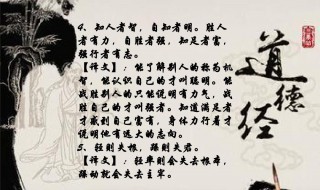 4、知人者智，自知者明。胜人
者有力，自胜者强，知足者富，
强行者有志。
【译文】：能了解别人的称为机
智，能认识自己的才叫聪明。能
战胜别人的只能说明有力气，战
胜自己的才叫强者。知道满足者
才感到自己富有，身体力行着才
说明他有远大的志向。
5、轻则失根，躁则失君。
【译文】：轻率则会失去根本，
躁动就会失去主宰。
道德经